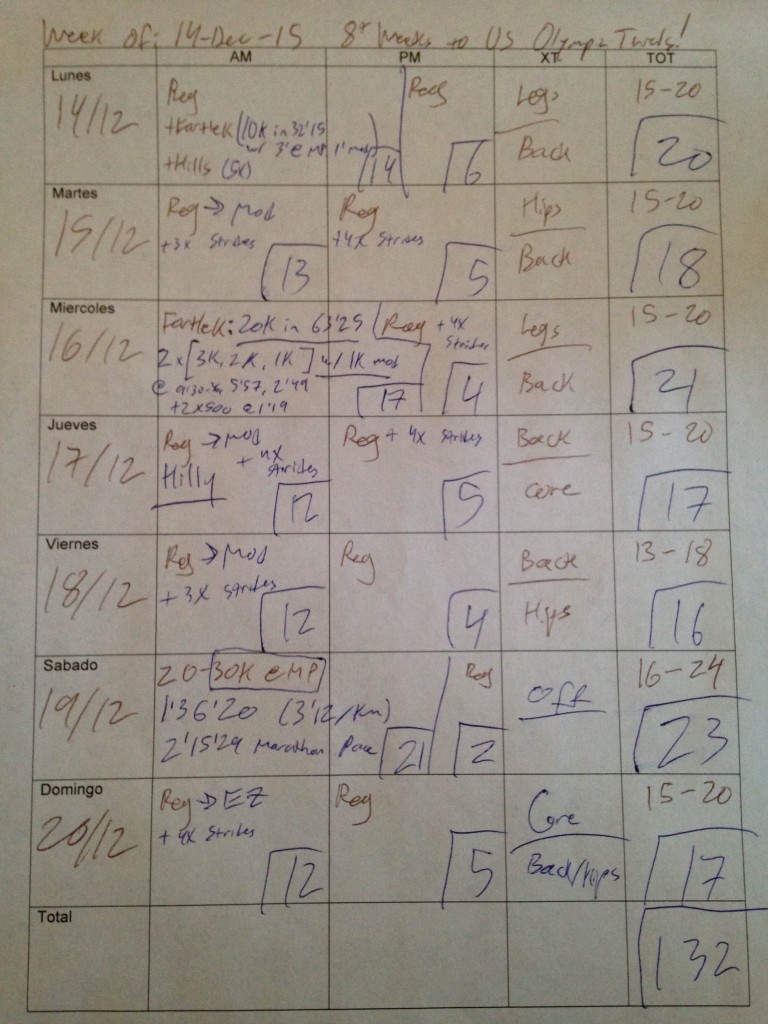 Week of: 14-Dec-15 8+ Weeks to US Olympic Trials!
AM PM XT TOT
Lunes
14/12
Reg
+Fartlek (10K in 32'15
w/ 3' @ MP, 1' mod)
+Hills (5x)
14
Reg
6
Legs
Back
15-20
20
Martes
15/12
Reg → Mod
+3x Strides
13
Reg
+4x Strides
5
Hips
Back
15-20
18
Miercoles
16/12
Fartlek: 20K in 63'25
2x[3K, 2K, 1K] w/ 1K mod
5'57, 2'49
+2x500 @ 1'19
17
Reg +4x
Strides
4
Legs
Back
15-20
21
Jueves
17/12
Reg → Mod
+4x
Strides
Hilly
12
Reg + 4x Strides
5
Back
Core
15-20
17
Viernes
18/12
Reg → Mod
+3x Strides
12
Reg
4
Back
Hips
13-18
16
Sabado
19/12
20-30K @MP
1'36'20 (3'12/km)
2'15'29 Marathon Pace
21
Reg
2
Off
16-24
23
Domingo
20/12
Reg → EZ
+4x Strides
12
Reg
5
Core
Back/Hips
15-20
17
Total
132